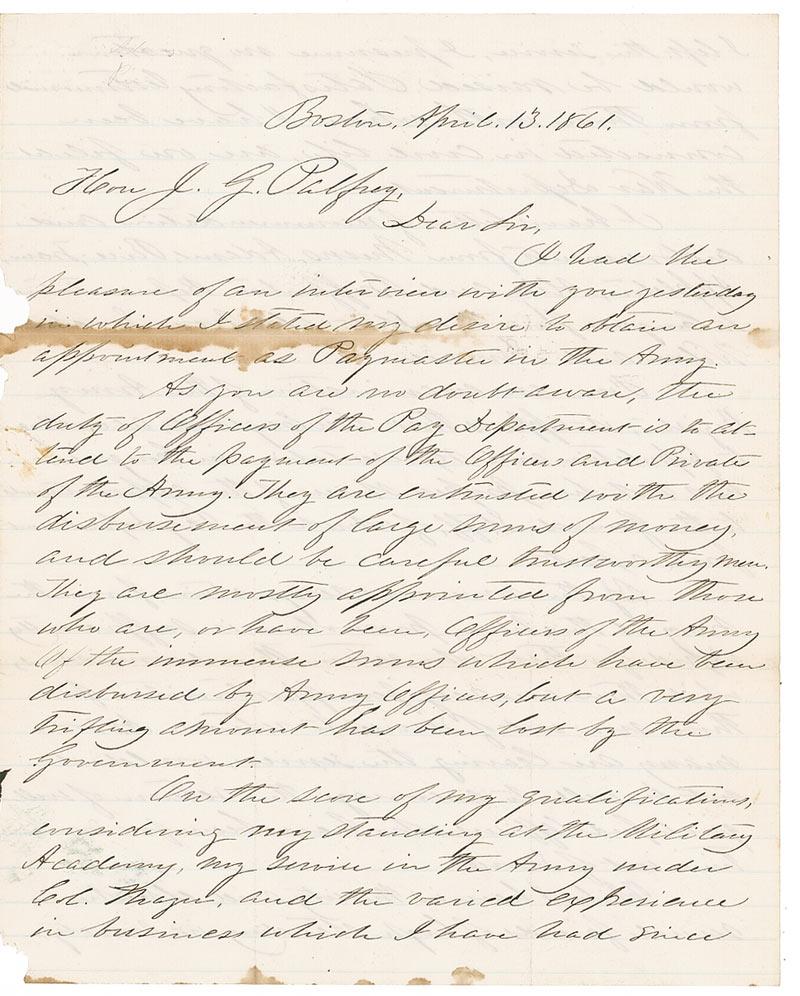 Boston, April. 13. 1861.
Hon J. G. Palfrey,
Dear Sir,
I had the
pleasure of an interview with you yesterday
in which I stated my desire to obtain an
appointment as Paymaster in the Army.
As you are no doubt aware, the
duty of Officers of the Pay Department is to at-
tend to the payment of the Officers and Privates
of the Army. They are entrusted with the
disbursement of large sums of money,
and should be careful trustworthy men.
They are mostly appointed from those
who are, or have been, Officers of the Army
Of the immense sums which have been
disbursed by Army Officers, but a very
trifling amount has been lost by the
Government.
On the score of my qualifications,
considering my standing at the Military
Academy, my service in the Army under
Col. Thayer, and the varied experience
in business which I have had since